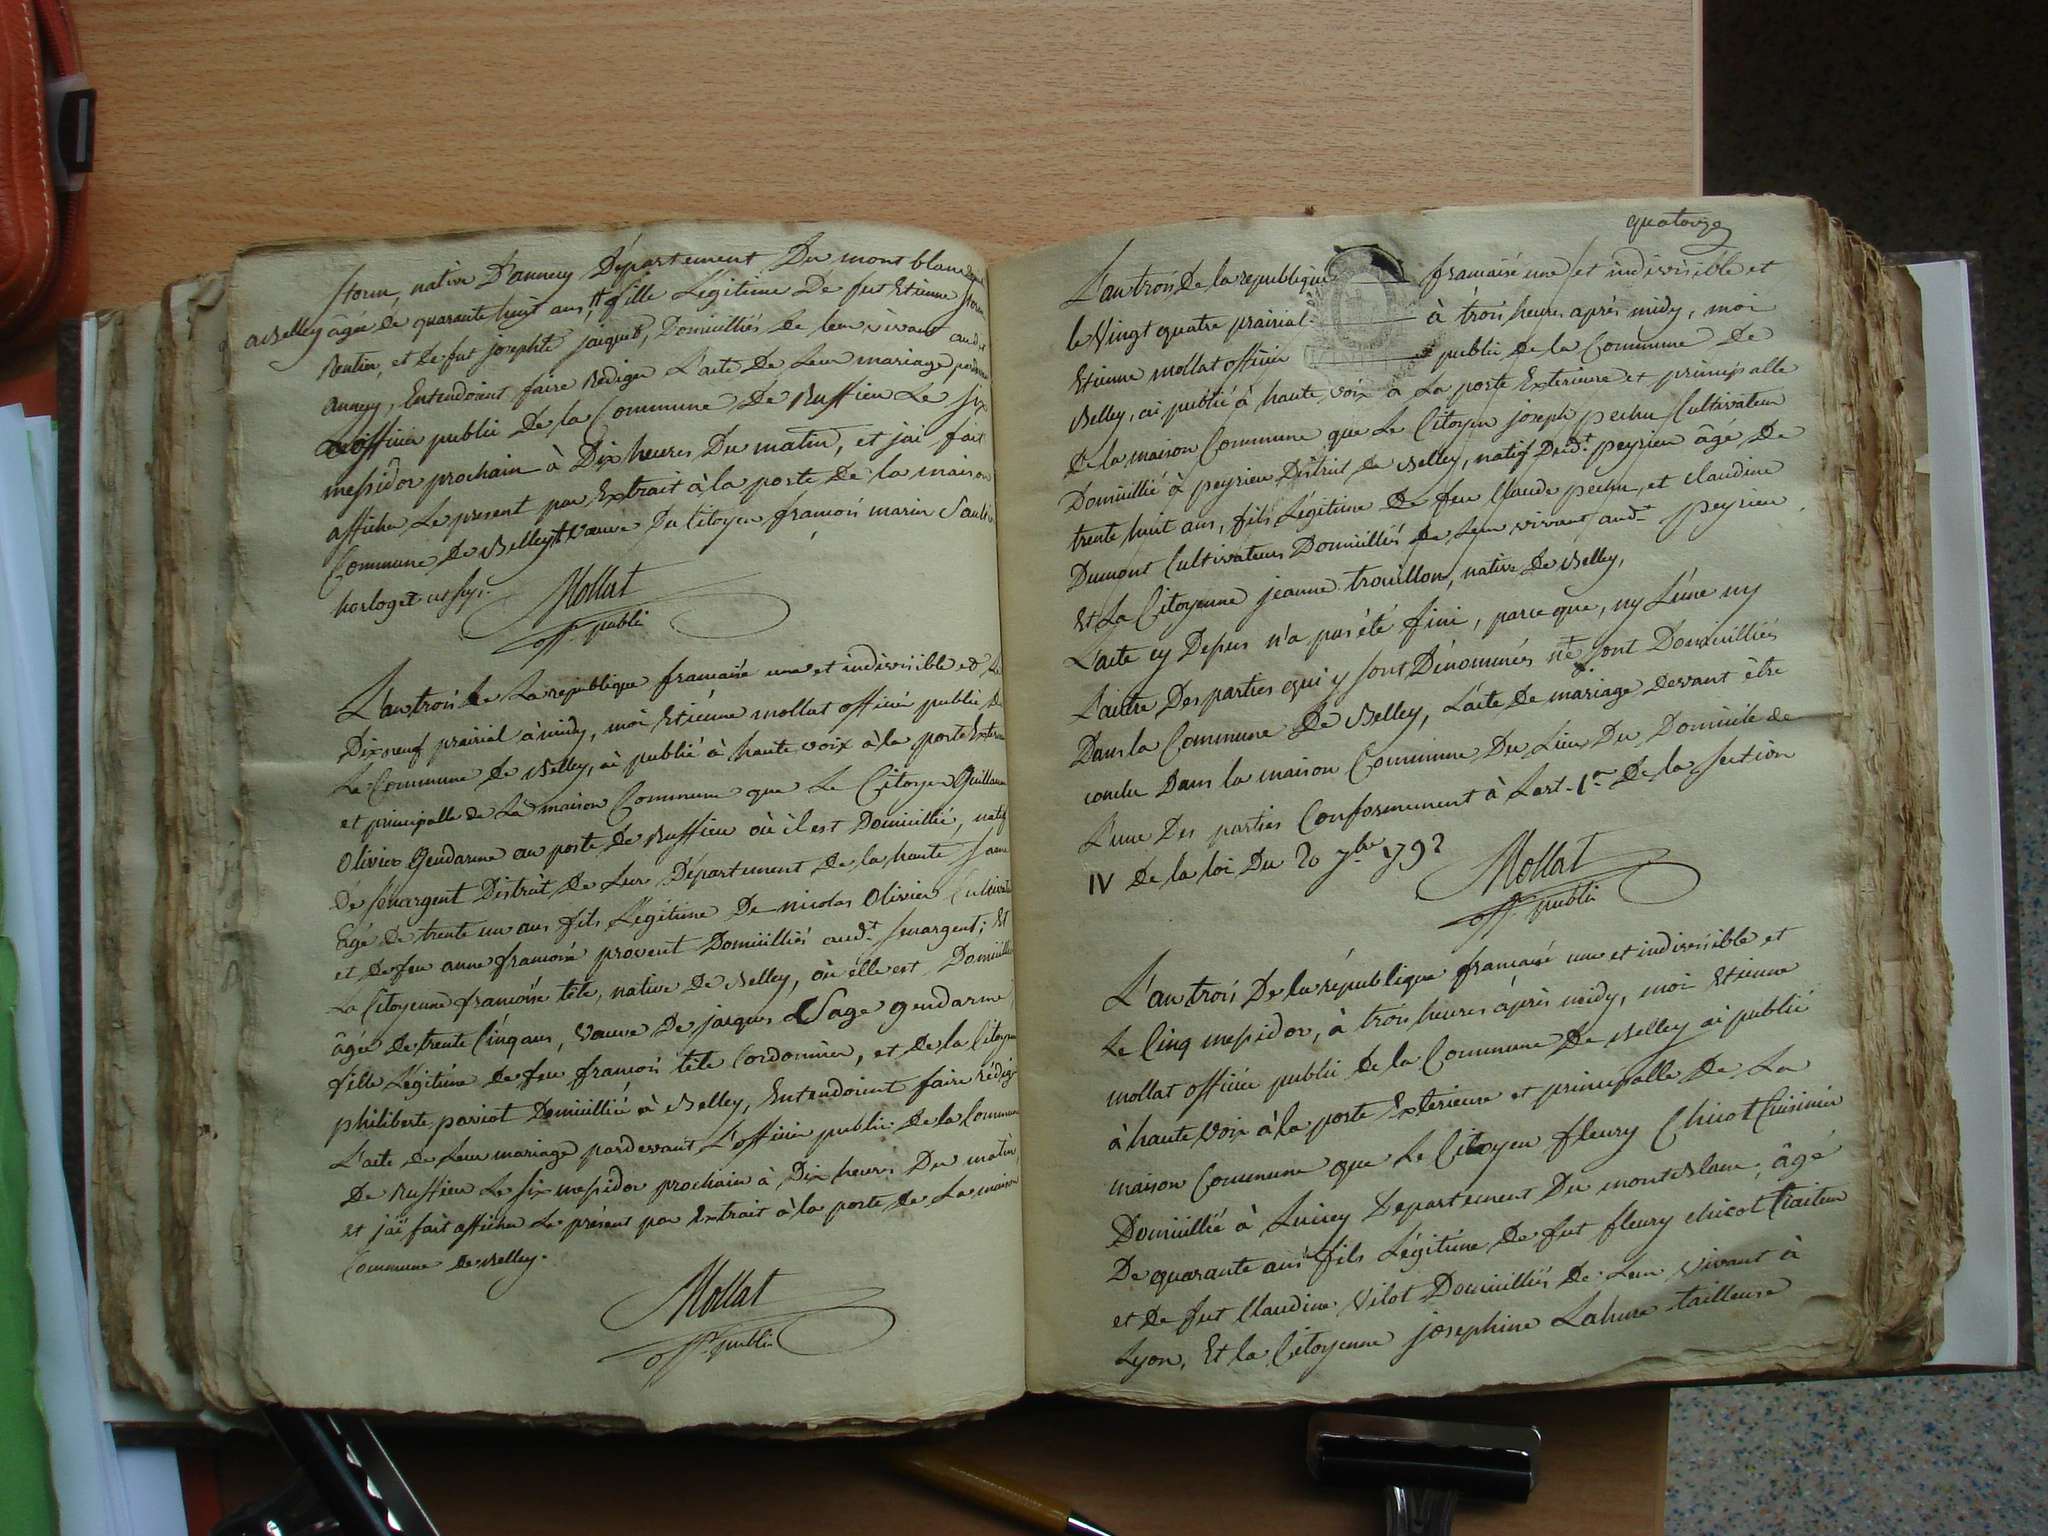 Storm, native D'annecy Département Du montblanc
a Belley âgée de quarante huit ans, # fille Légitime De fut Etienne Storm
Rentier, et de fut josephte jaiquet, Domiciliés de leur vivant aud.
annecy, Entendoient faire Rediger L'acte De Leur mariage pardevant
officier public De la Commune De Ruffieu Le Six
messidor prochain à Dix heures Du matin, et jai fait
afficher Le present par Extrait à la porte De la maison
Commune De Belley # veuve Du Citoyen francois marin
horloger
Mollat
off. public
L'an trois de La republique francaise une et indivisible et Le
Dix neuf prairial à midy, moi Etienne mollat officier public De
La Commune de Belley, ai publié à haute voix à la porte Exterieure
et principalle de La maison Commune que Le Citoyen Guillaume
Olivier Gendarme au poste de Ruffieu où il est Domicillié, natif
de Senargent District De Lure Département de la haute Saone
âgé De trente un ans fils Légitime De nicolas Olivier Cultivateur
et De feu anne francoise provent Domicilliés aud.t Senargent; Et
La Citoyenne francoise tête, native De Belley, où elle est Domicilliée
âgée De trente Cinq ans, Veuve De jacques Sage gendarme
fille Légitime de feu francois tête Cordonnier, et de la Citoyenne
philiberte pariot Domicilliée à Belley, Entendoient faire rédiger
L'acte de Leur mariage pardevant L'officier public De la Commune
De Ruffieu Le Six messidor prochain à Dix heures Du matin,
et jai fait afficher Le présent par Extrait à la porte de La maison
Commune de Belley.
Mollat
off. public
quatorze
L'an trois De la republique francaise une et indivisible et
le Vingt quatre prairial à trois heures après midy, moi
Etienne mollat officier public de la Commune De
Belley, ai publié à haute voix à La porte Exterieure et principalle
De la maison Commune que Le Citoyen joseph pechu Cultivateur
Domicillié à peyrieu District de Belley, natif Dud.t peyrieu âgé De
trente huit ans, fils Légitime De feu Claude pechu, et claudine
Dumont Cultivateurs Domicilliés de Leur vivant aud.t peyrieu
Et La Citoyenne jeanne trouillon, native de Belley,
L'acte cy Depus n'a pas été fini, parce que, ny L'une ny
L'autre Des parties qui y sont Dénommées ne sont Domicilliés
Dans la Commune De Belley, L'acte De mariage Devant être
conclu Dans la maison Commune Du Lieu Du Domicile de
L'une Des parties Conformement à L'art. 1er De la Section
IV De la loi Du 20 7bre 1792
Mollat
off. public
L'an trois De la république francaise une et indivisible et
Le Cinq messidor, à trois heures après midy, moi Etienne
mollat officier public de la Commune De Belley ai publié
à haute Voix à la porte Exterieure et principalle De La
maison Commune que Le Citoyen fleury Chicot Cuisinier
Domicillié à Lucey Departement Du montblanc, âgé
De quarante ans fils Légitime De fut fleury chicot traiteur
et De fut Claudine Vilot Domicilliés De Leur Vivant à
Lyon, Et la Citoyenne josephine Lahure tailleuse